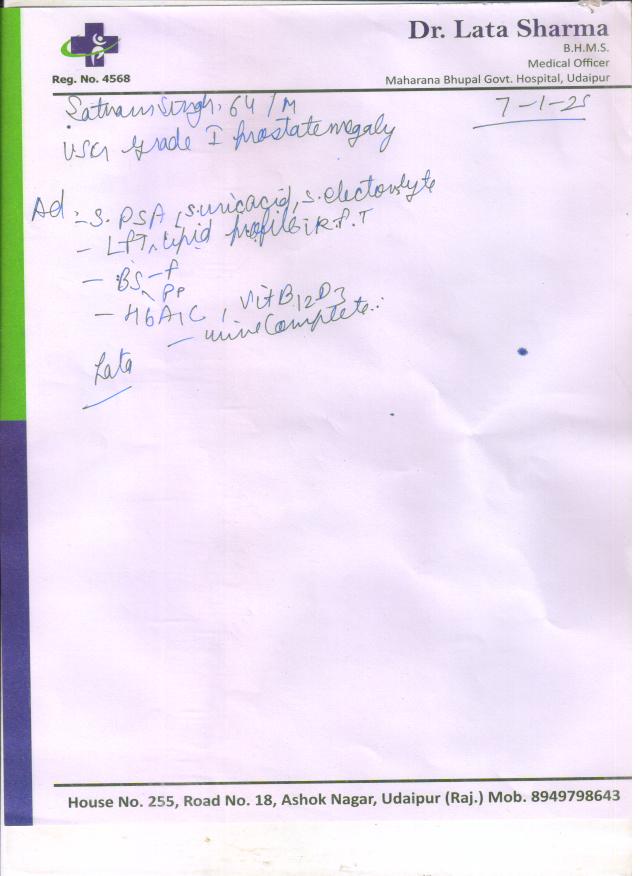 Dr. Lata Sharma
B.H.M.S.
Medical Officer
Maharana Bhupal Govt. Hospital, Udaipur
Reg. No. 4568
Satnam Singh, 64/M
7-1-25
USG Grade I prostatemegaly
Ad :- S. PSA, S. uricacid, S. electrolyte
- LFT, Lipid profile, R.F.T
- BS - F
PP
- HbA1C, Vit B12 D3
- urine Complete
Lata
House No. 255, Road No. 18, Ashok Nagar, Udaipur (Raj.) Mob. 8949798643